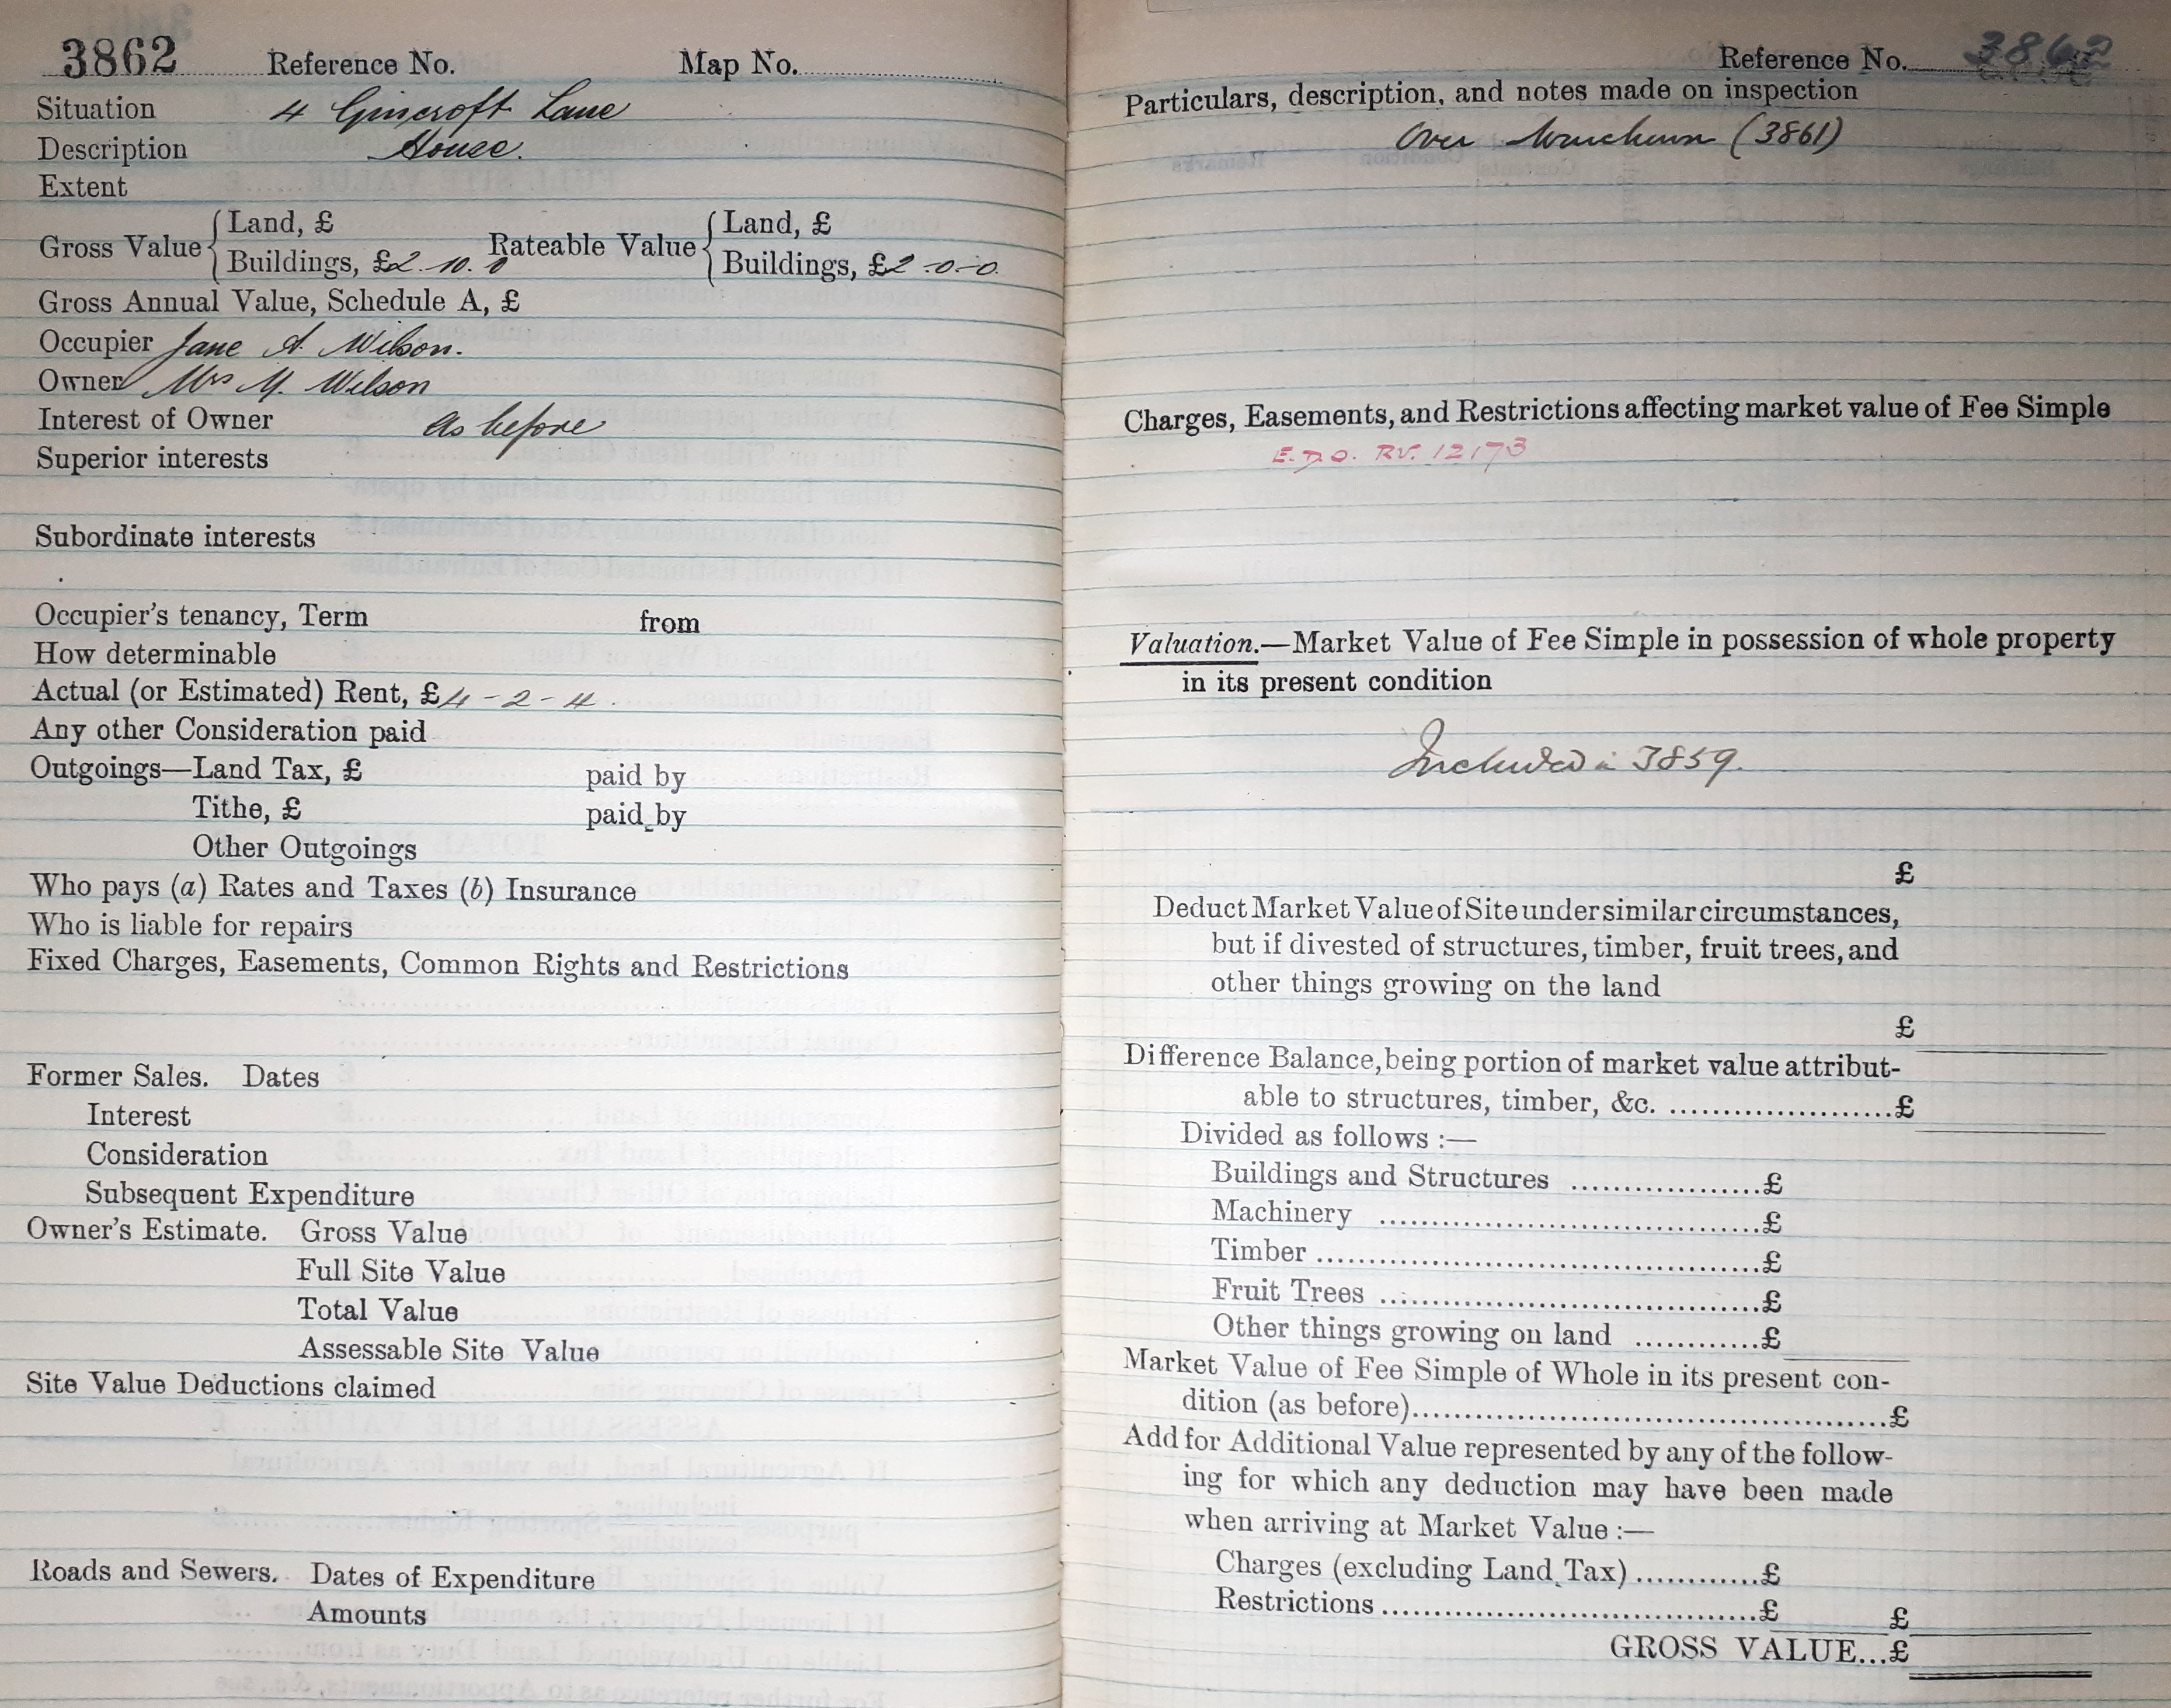 3862 Reference No. Map No.
Situation 4 Gincroft Lane
Description House.
Extent
Gross Value { Land, £
Buildings, £2. 10. 0
Rateable Value { Land, £
Buildings, £2-0-0.
Gross Annual Value, Schedule A, £
Occupier Jane A. Wilson.
Owner Mrs M. Wilson
Interest of Owner As before
Superior interests
Subordinate interests
Occupier's tenancy, Term from
How determinable
Actual (or Estimated) Rent, £4-2-4.
Any other Consideration paid
Outgoings—Land Tax, £ paid by
Tithe, £ paid by
Other Outgoings
Who pays (a) Rates and Taxes (b) Insurance
Who is liable for repairs
Fixed Charges, Easements, Common Rights and Restrictions
Former Sales. Dates
Interest
Consideration
Subsequent Expenditure
Owner's Estimate. Gross Value
Full Site Value
Total Value
Assessable Site Value
Site Value Deductions claimed
Roads and Sewers. Dates of Expenditure
Amounts
Reference No. 3862
Particulars, description, and notes made on inspection
Over (3861)
Charges, Easements, and Restrictions affecting market value of Fee Simple
E.D.O. RV. 12173
Valuation.—Market Value of Fee Simple in possession of whole property
in its present condition
Included in 3859.
£
Deduct Market Value of Site under similar circumstances,
but if divested of structures, timber, fruit trees, and
other things growing on the land
£
Difference Balance, being portion of market value attribut-
able to structures, timber, &c. ......................£
Divided as follows :—
Buildings and Structures ..................£
Machinery ....................................£
Timber ..........................................£
Fruit Trees ....................................£
Other things growing on land ...........£
Market Value of Fee Simple of Whole in its present con-
dition (as before)..............................................£
Add for Additional Value represented by any of the follow-
ing for which any deduction may have been made
when arriving at Market Value :—
Charges (excluding Land Tax) ............£
Restrictions ....................................£ £
GROSS VALUE...£